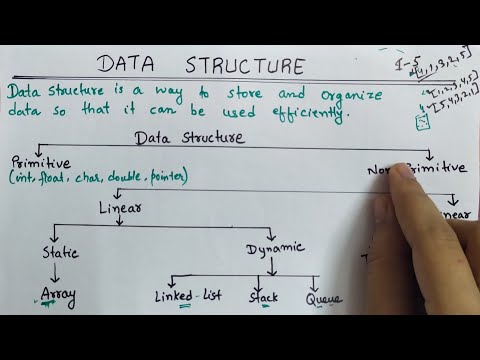 DATA STRUCTURE
1-5
[4,1,3,2,5]
[1,2,3,4,5]
[5,4,3,2,1]
Data structure is a way to store and organize
data so that it can be used efficiently.
Data Structure
Primitive
(int, float, char, double, pointer)
Primitive
Linear
Static
Dynamic
Array
Linked-List
Stack
Queue